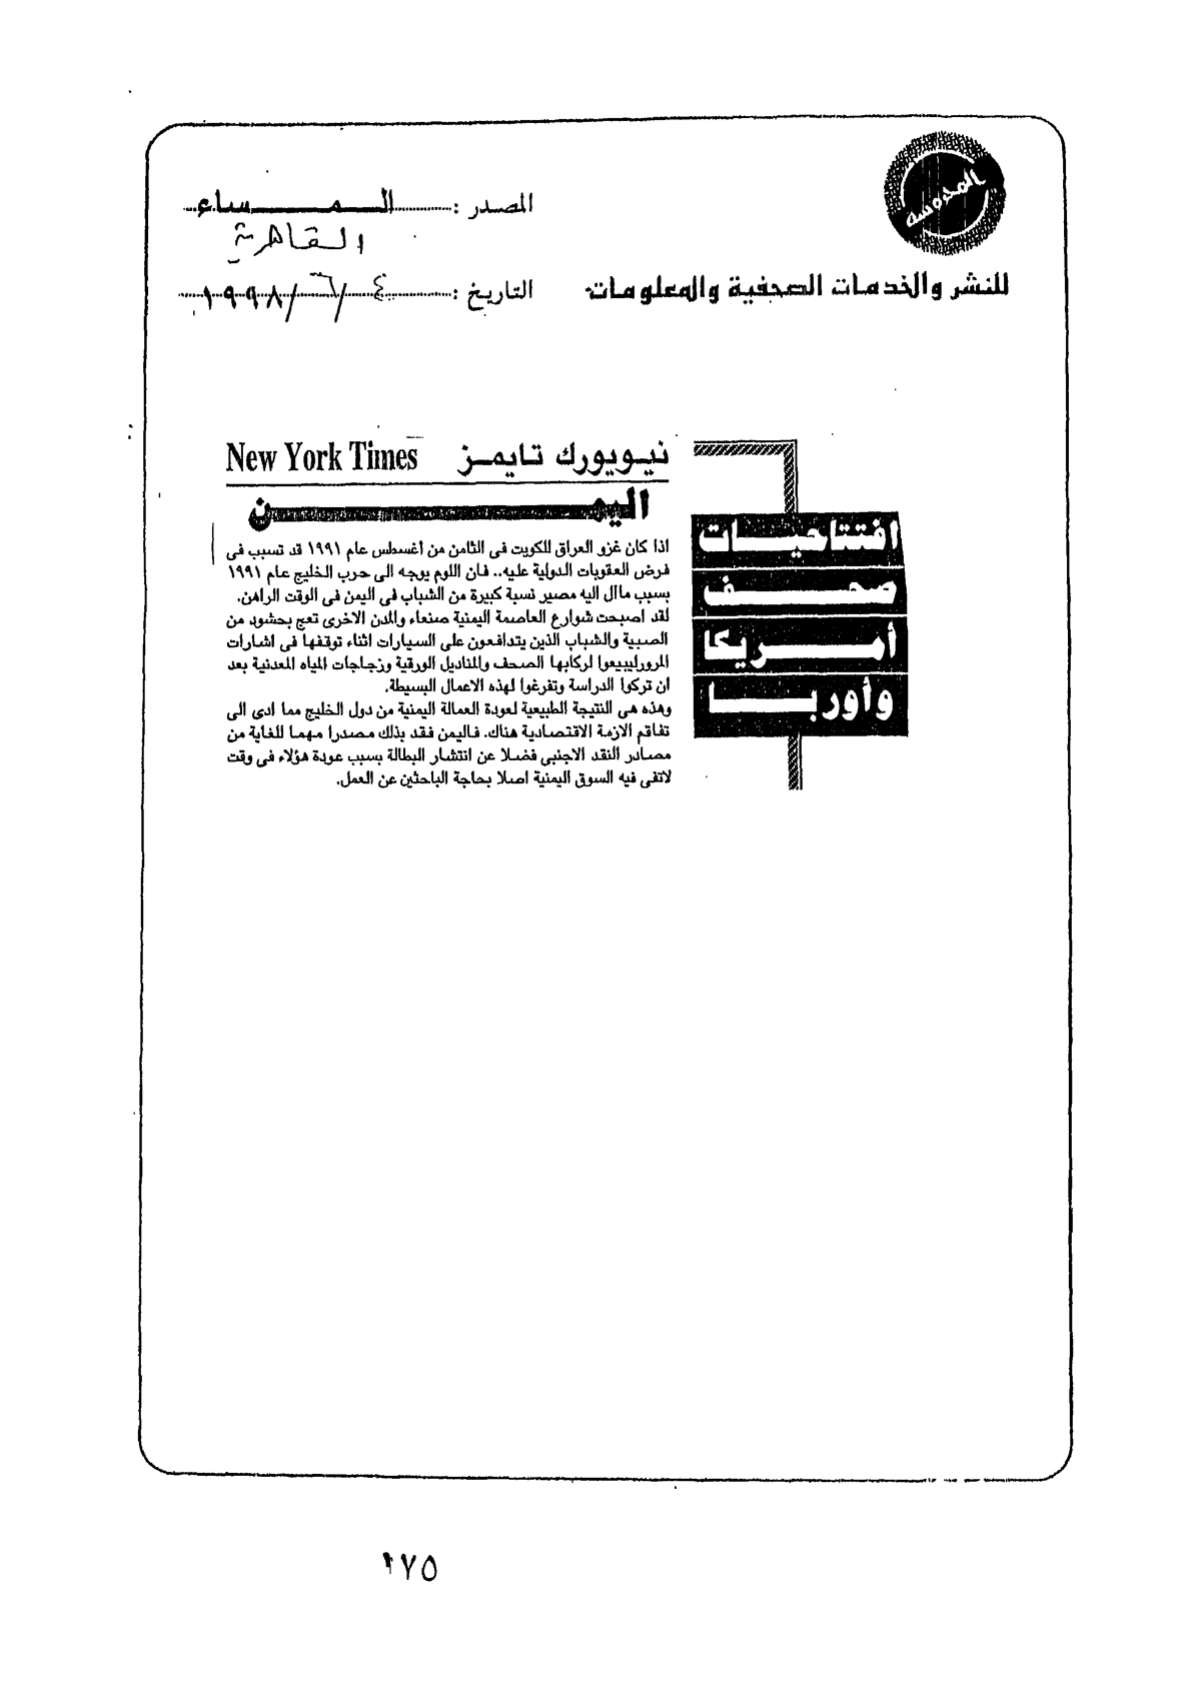 المحروسة
للنشر والخدمات الصحفية والمعلومات
المصدر : المساء
القاهرية
التاريخ : ٤ / ٦ / ١٩٩٨
افتتاحيات
صحف
أمريكا
وأوربا
نيويورك تايمز New York Times
اليمن
اذا كان غزو العراق للكويت فى الثامن من أغسطس عام ١٩٩١ قد تسبب فى
فرض العقوبات الدولية عليه.. فان اللوم يوجه الى حرب الخليج عام ١٩٩١
بسبب ماآل اليه مصير نسبة كبيرة من الشباب فى اليمن فى الوقت الراهن.
لقد اصبحت شوارع العاصمة اليمنية صنعاء والمدن الاخرى تعج بحشود من
الصبية والشباب الذين يتدافعون على السيارات اثناء توقفها فى اشارات
المرورليبيعوا لركابها الصحف والمناديل الورقية وزجاجات المياه المعدنية بعد
ان تركوا الدراسة وتفرغوا لهذه الاعمال البسيطة.
وهذه هى النتيجة الطبيعية لعودة العمالة اليمنية من دول الخليج مما ادى الى
تفاقم الازمة الاقتصادية هناك. فاليمن فقد بذلك مصدرا مهما للغاية من
مصادر النقد الاجنبى فضلا عن انتشار البطالة بسبب عودة هؤلاء فى وقت
لاتفى فيه السوق اليمنية اصلا بحاجة الباحثين عن العمل.